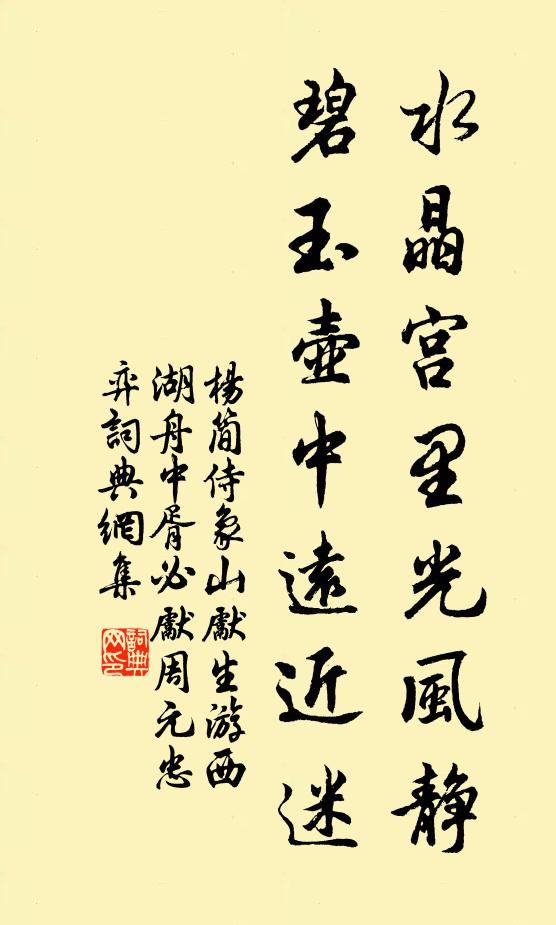 水晶宮里光風靜
碧玉壺中遠近迷
楊簡侍象山獻生游西
湖舟中胥必獻周元忠
弈詞典網集
詞典网印